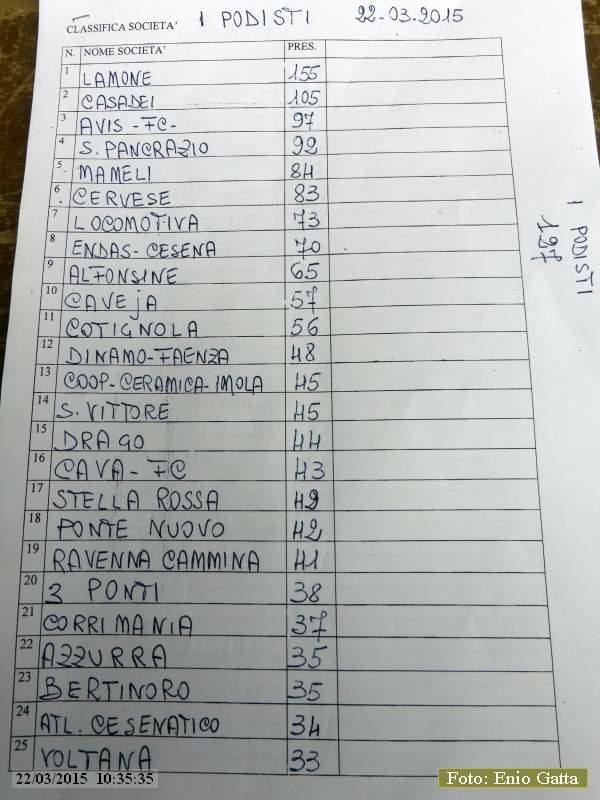 CLASSIFICA SOCIETA' I PODISTI 22-03.2015
N. NOME SOCIETA' PRES.
1 LAMONE 155
2 CASADEI 105
3 AVIS - FC - 97
4 S. PANCRAZIO 92
5 MAMELI 84
6 CERVESE 83
7 LOCOMOTIVA 73
8 ENDAS-CESENA 70
9 ALFONSINE 65
10 CAVEJA 57
11 COTIGNOLA 56
12 DINAMO-FAENZA 48
13 COOP-CERAMICA-IMOLA 45
14 S. VITTORE 45
15 DRAGO 44
16 CAVA - FC 43
17 STELLA ROSSA 42
18 PONTE NUOVO 42
19 RAVENNA CAMMINA 41
20 3 PONTI 38
21 CORRIMANIA 37
22 AZZURRA 35
23 BERTINORO 35
24 ATL. CESENATICO 34
25 VOLTANA 33
I PODISTI
197
22/03/2015 10:35:35
Foto: Enio Gatta